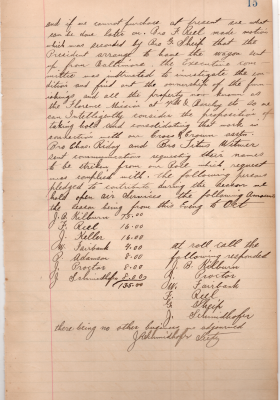 15
and if we cannot purchase at present see what
can be done later on. Bro F. Reel made motion
which was seconded by Bro G Sheip that the
President arrange to have the wagon sent
up from Baltimore, the Executive com
mittee was instructed to investigate the con
dition and find out the ownership of the fur
nishings and of the property now known as
the Florence Mission at &c so we
can Intelligently consider the proposition of
taking hold and consolidating that work in
connection with our Cross & Crown
Bro Chas. Ridey and Bro Titus Witmer
sent communications requesting their names
to be stricken from our Role which request
was complied with. the following persons
pledged to contribute during the season we
hold open air services the following amounts
the season being from this being to Oct
J. B. Kilburn 75.00
F. Reel 16.00
J. Keller 16.00
W. Fairbank 4.00
P. Adamson 8.00
J. Proctor 8.00
J. Schmidhofer 8.00
135.00
at roll call the
following responded
J. B. Kilburn
Proctor
W. Fairbank
F. Reel
G Sheip
J. Schmidhofer
there being no other business we adjourned
J Schmidhofer Secty